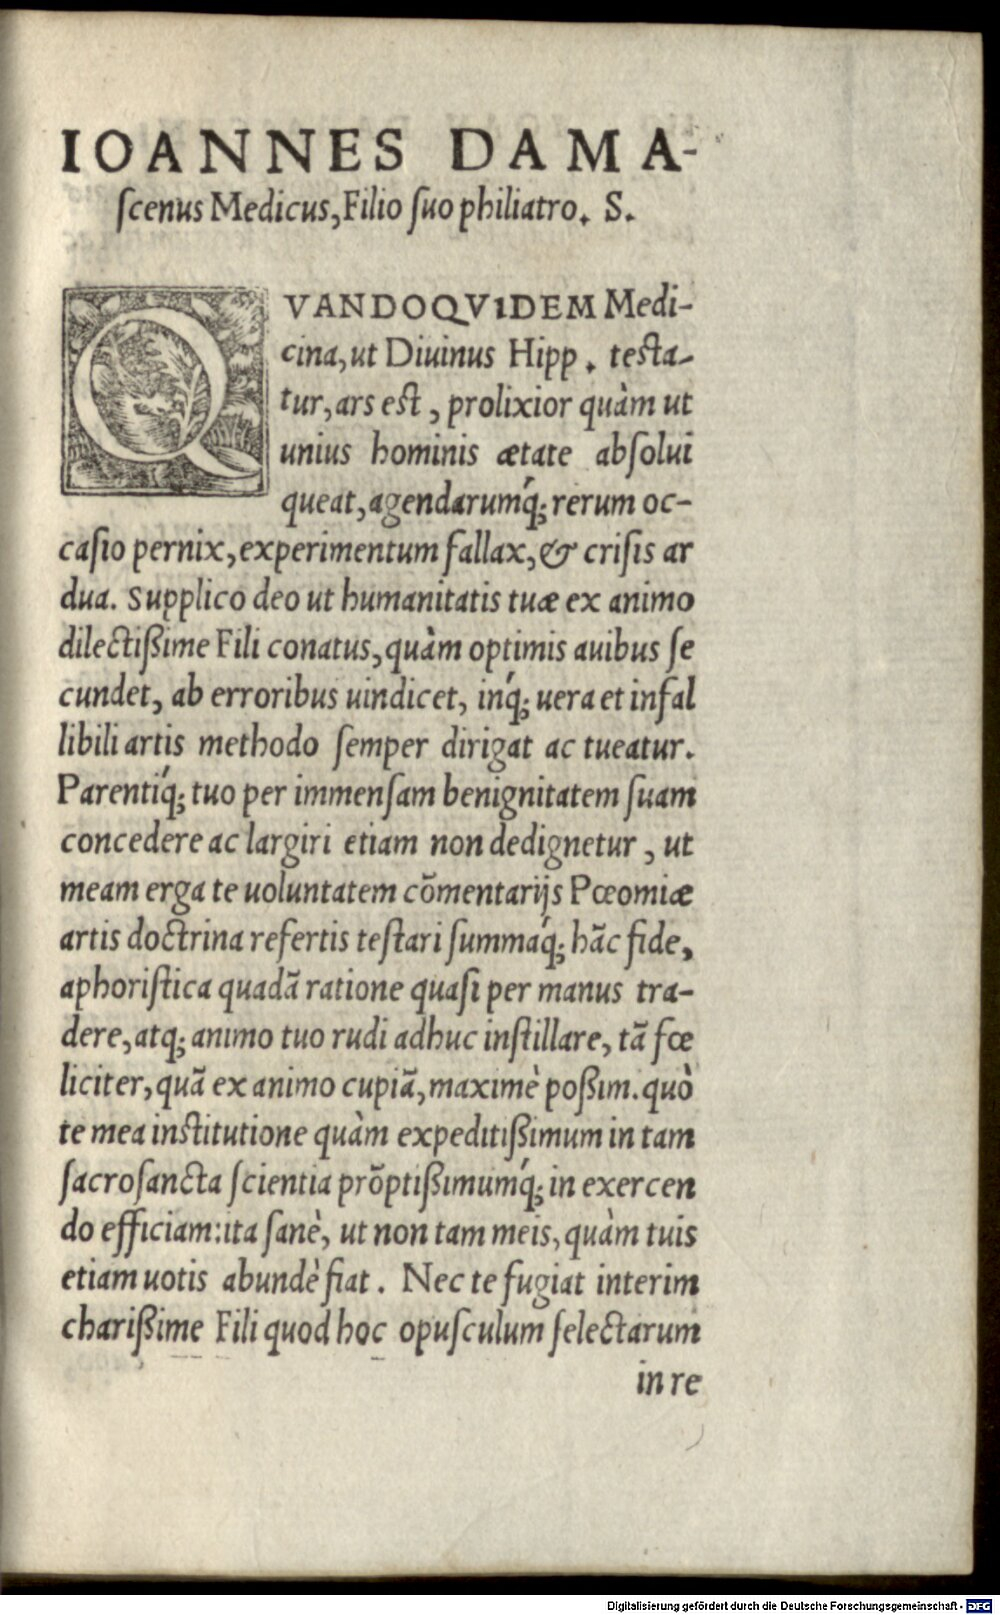 IOANNES DAMA-
ſcenus Medicus, Filio ſuo philiatro. S.
QVANDOQVIDEM Medi-
cina, ut Diuinus Hipp. teſta-
tur, ars eſt, prolixior quàm ut
unius hominis ætate abſolui
queat, agendarumq́; rerum oc-
caſio pernix, experimentum fallax, & criſis ar
dua. Supplico deo ut humanitatis tuæ ex animo
dilectißime Fili conatus, quàm optimis auibus ſe
cundet, ab erroribus uindicet, inq́; uera et infal
libili artis methodo ſemper dirigat ac tueatur.
Parentiq́; tuo per immenſam benignitatem ſuam
concedere ac largiri etiam non dedignetur, ut
meam erga te uoluntatem cōmentarijs Pœomiæ
artis doctrina refertis teſtari ſummaq́; hāc fide,
aphoriſtica quadā ratione quaſi per manus tra-
dere, atq; animo tuo rudi adhuc inſtillare, tā fœ
liciter, quā ex animo cupiā, maximè poßim. quò
te mea inſtitutione quàm expeditißimum in tam
ſacroſancta ſcientia prōptißimumq́; in exercen
do efficiam: ita ſanè, ut non tam meis, quàm tuis
etiam uotis abundè fiat. Nec te fugiat interim
charißime Fili quod hoc opuſculum ſelectarum
in re
Digitalisierung gefördert durch die Deutsche Forschungsgemeinschaft - DFG